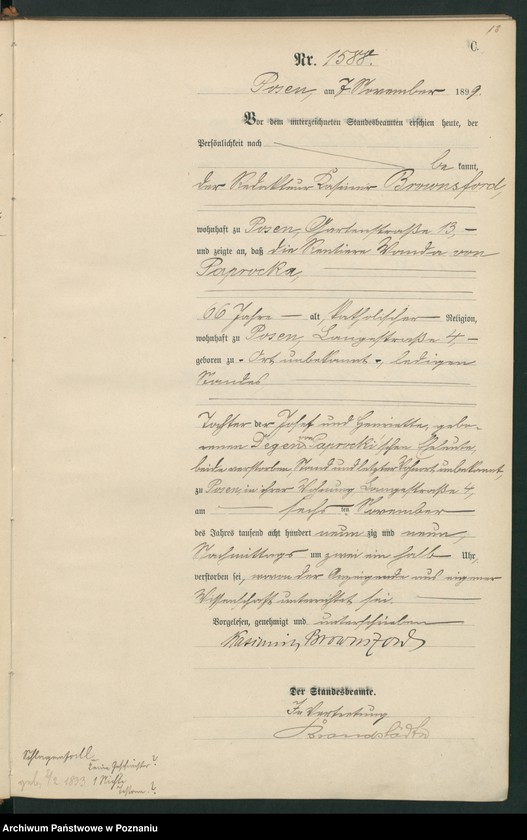 18
C.
Nr. 1588.
Posen, am 7 November 1899.
Vor dem unterzeichneten Standesbeamten erschien heute, der
Persönlichkeit nach
be kannt,
der Redakteur Kasimir Brownsford,
wohnhaft zu Posen, Gartenstraße 13, –
und zeigte an, daß die Rentiere Wanda von
Paprocka,
66 Jahre – alt, katholischer – Religion,
wohnhaft zu Posen, Langestraße 4 –
geboren zu - Ort unbekannt -, ledigen
Standes
Tochter der Josef und Henriette, gebo-
renen Degen von Paprocki'schen Eheleute,
beide verstorben, Stand und letzter Wohnort unbekannt,
zu Posen, in ihrer Wohnung Langestraße 4,
am sechsten November
des Jahres tausend acht hundert neun zig und neun,
Nachmittags um zwei ein halb Uhr,
verstorben sei, wovon der Anzeigende aus eigener
Wissenschaft unterrichtet sei.
Vorgelesen, genehmigt und unterschrieben
Kasimir Brownsford
Der Standesbeamte.
In Vertretung
geb. 4/2 1833